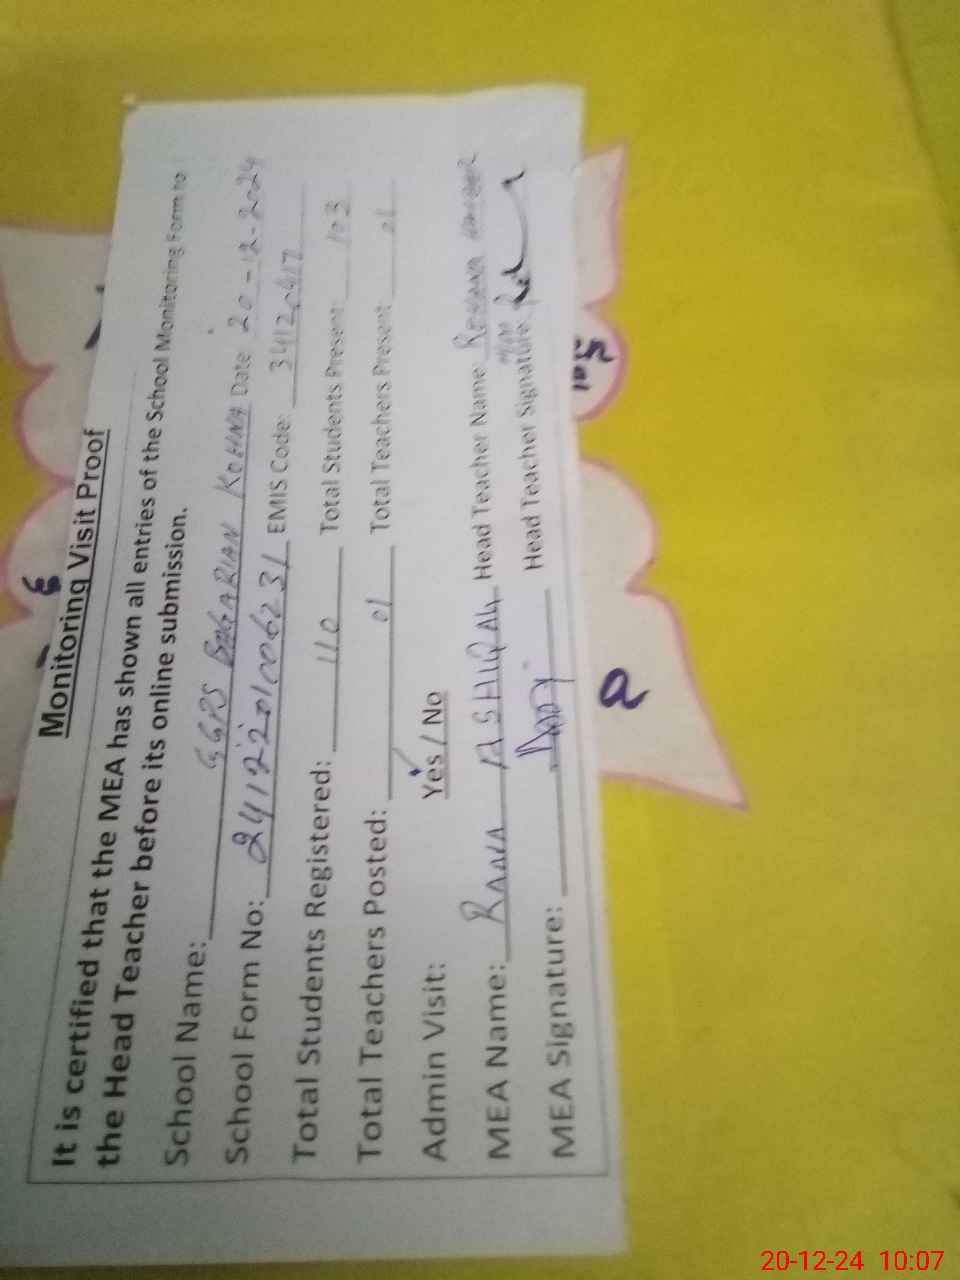 Monitoring Visit Proof
It is certified that the MEA has shown all entries of the School Monitoring Form to
the Head Teacher before its online submission.
School Name: GGPS BAGARIAN KOHNA Date 20-12-2024
School Form No: 2412201006231 EMIS Code: 34120417
Total Students Registered: 110 Total Students Present: 103
Total Teachers Posted: 01 Total Teachers Present: 01
Admin Visit: Yes / No
MEA Name: RANA ASHIQ ALI Head Teacher Name:
MEA Signature: Head Teacher Signature:
20-12-24 10:07